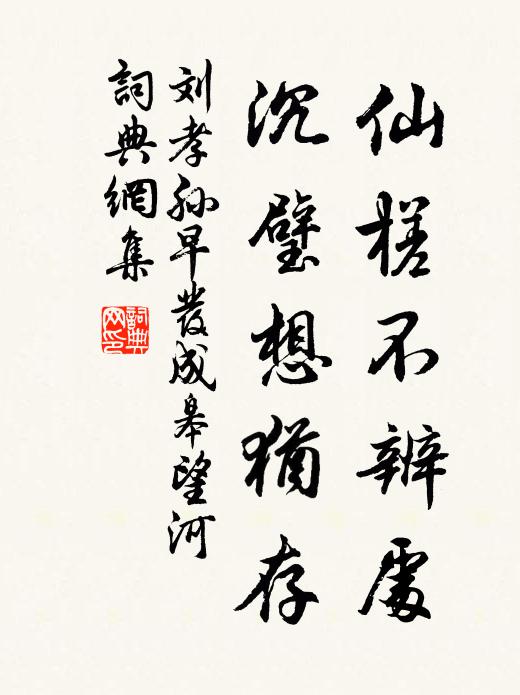 仙槎不辨處
沉璧想猶存
刘孝孙早發成皋望河
詞典網集
詞典网印